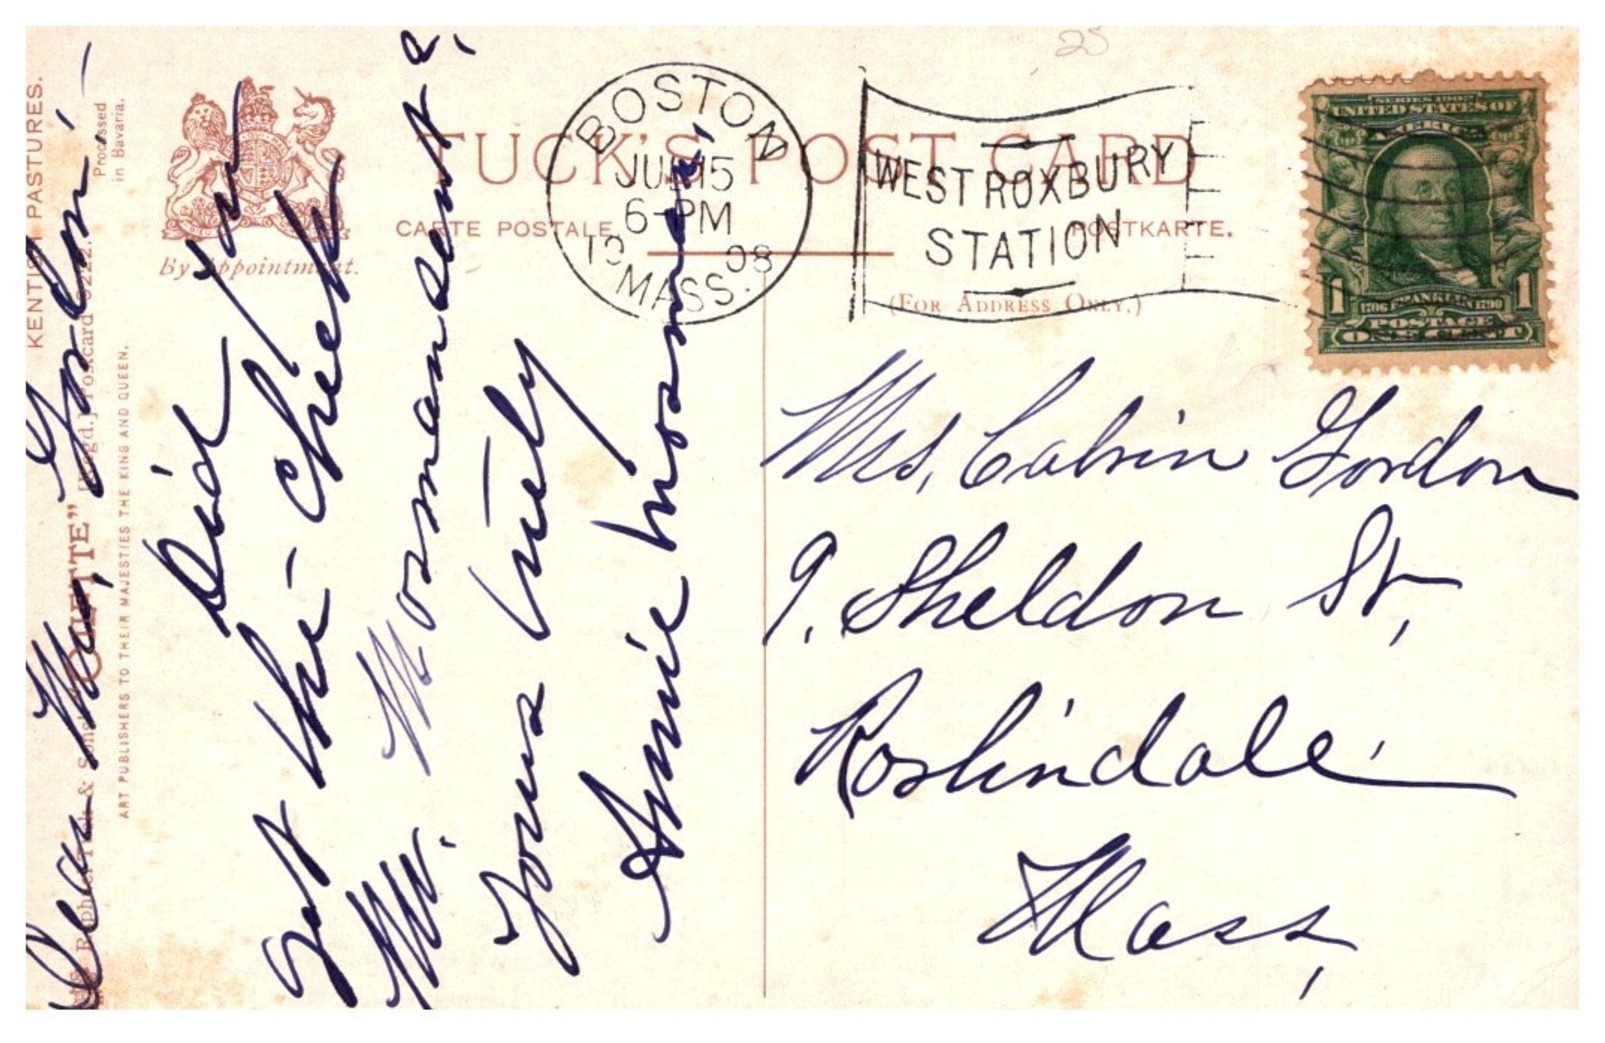 25
BOSTON
JUN 15
6-PM
08
MASS.
WEST ROXBURY
STATION
TUCK'S POST CARD
CARTE POSTALE. POSTKARTE.
(FOR ADDRESS ONLY.)
By Appointment.
SERIES 1902
UNITED STATES OF
AMERICA
1 1706 FRANKLIN 1790 1
POSTAGE
ONE CENT
Mrs. Calvin Gordon
9. Sheldon St,
Roslindale.
Mass,
Dear Mrs, Gordon:-
Did you
get the check
Mr. M
sent?
Yours truly
Annie
KENTISH PASTURES.
Processed
in Bavaria.
Raphael Tuck & Sons' "OILETTE" [Regd.] Postcard
ART PUBLISHERS TO THEIR MAJESTIES THE KING AND QUEEN.